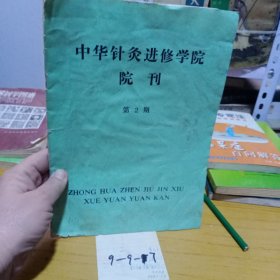 中华针灸进修学院
院 刊
第 2 期
ZHONG HUA ZHEN JIU JIN XIU
XUE YUAN YUAN KAN
9-9-17